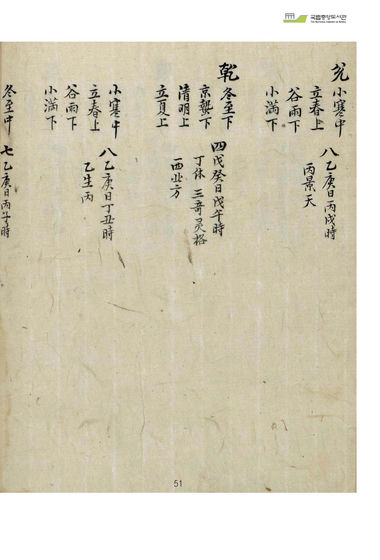 국립중앙도서관
兌 小寒中 八 乙庚日丙戌時
立春上 丙景天
谷雨下
小滿下
乾 冬至下 四 戊癸日戊午時
京蟄下 丁休 三奇灵格
清明上 西北方
立夏上
小寒中 八 乙庚日丁丑時
立春上 乙生丙
谷雨下
小滿下
冬至中 七 乙庚日丙子時
51